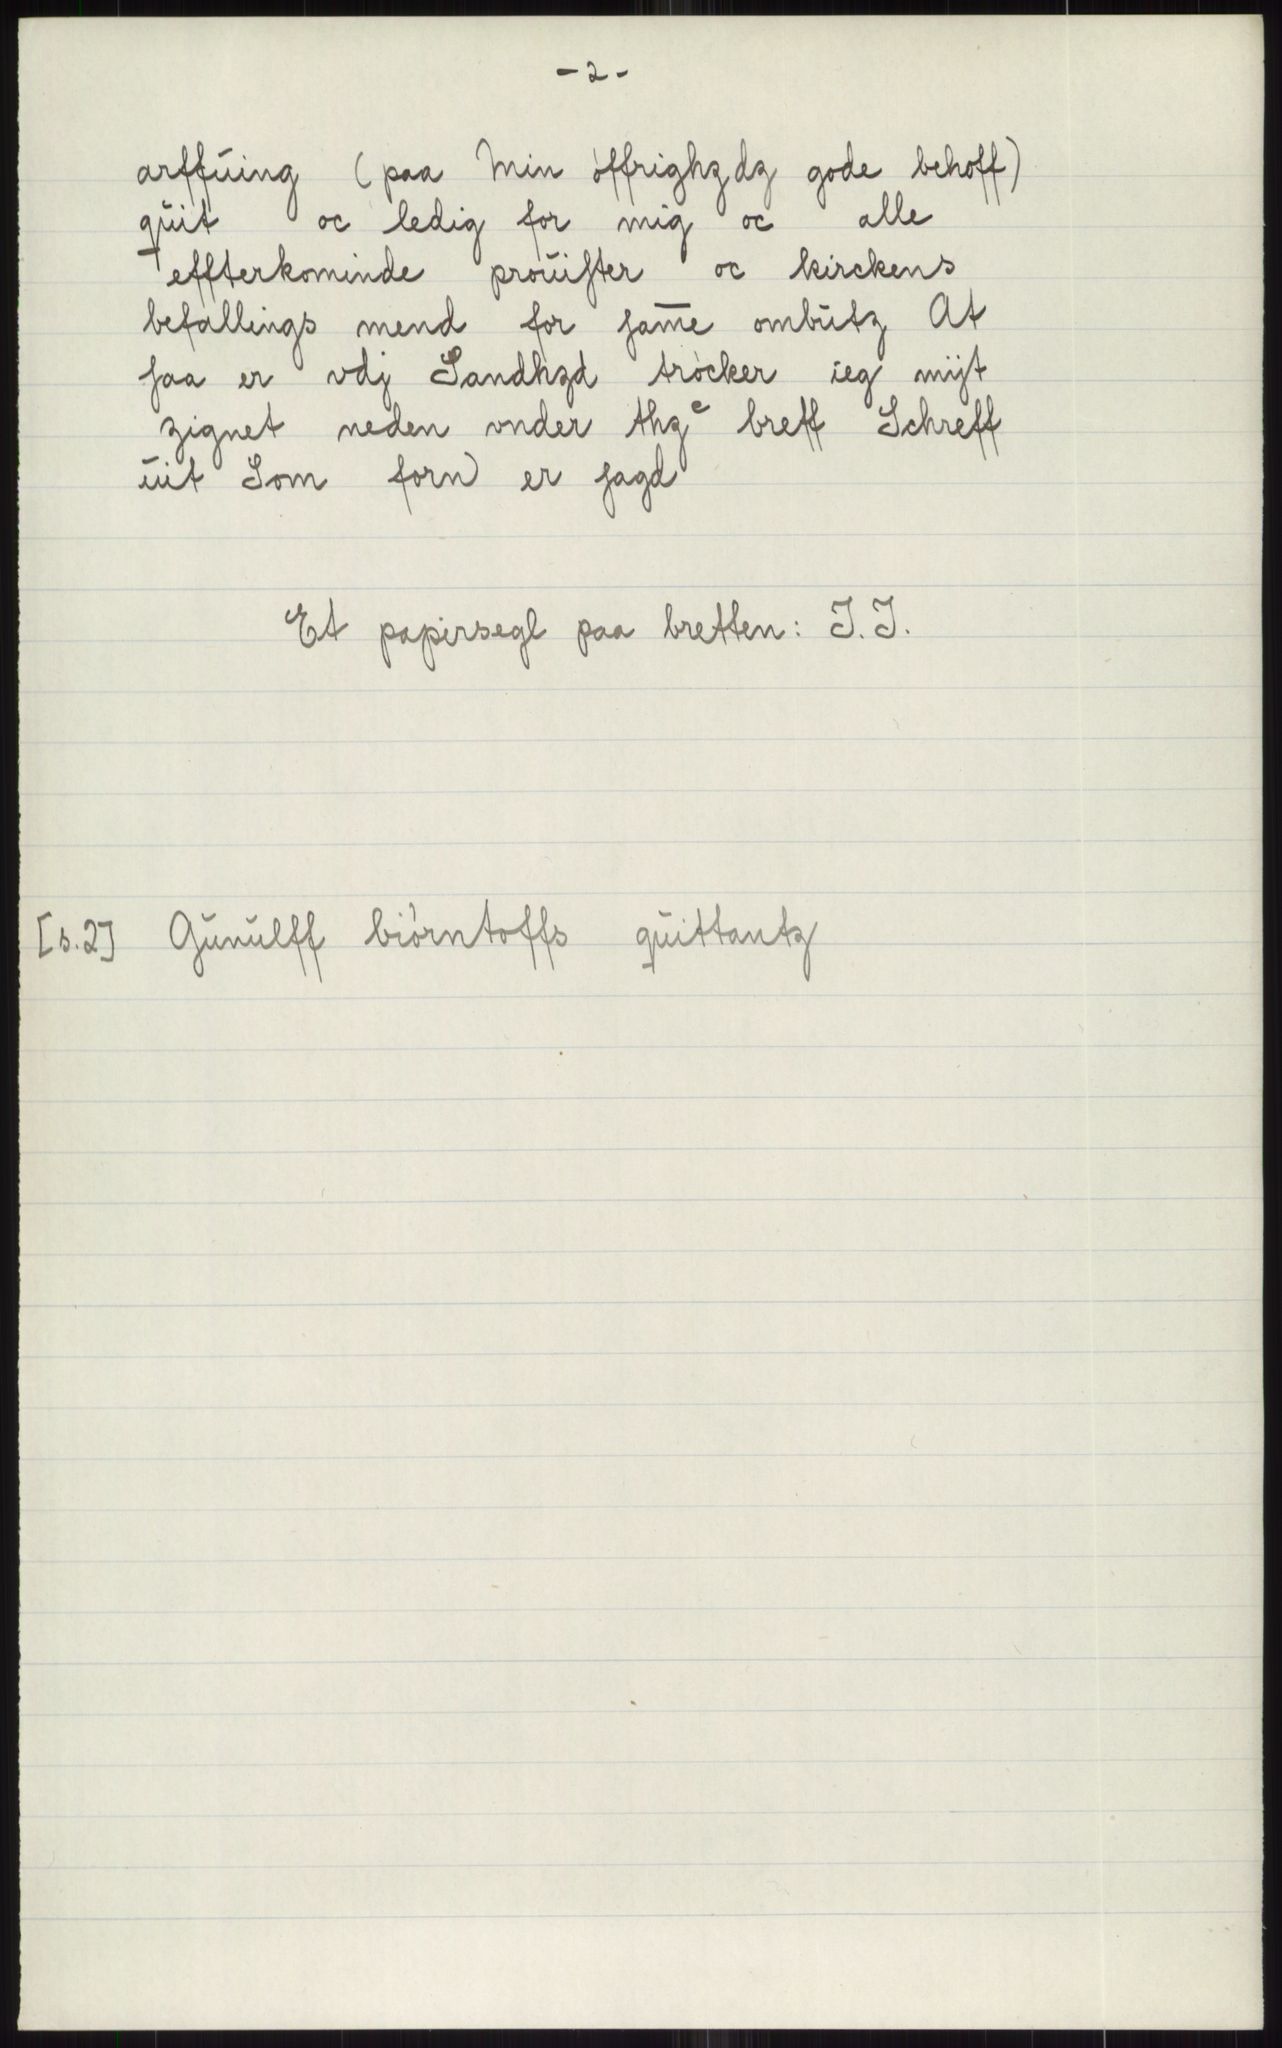 - 2 -
arffŭing (paa Min öffrighzdz gode behoff)
qŭit oc ledig for mig oc alle
effterkominde proŭiſter oc kirckens
befallings mend for ſam̄e ombŭtz At
ſaa er vdj Sandhzd tröcker ieg mijt
zignet neden vnder thzᵉ breff Schreff
ŭit Som forn) er ſagd
Et papirsegl paa bretten: J.J.
[s.2] Gŭnŭlff biörntoffs qŭittantz